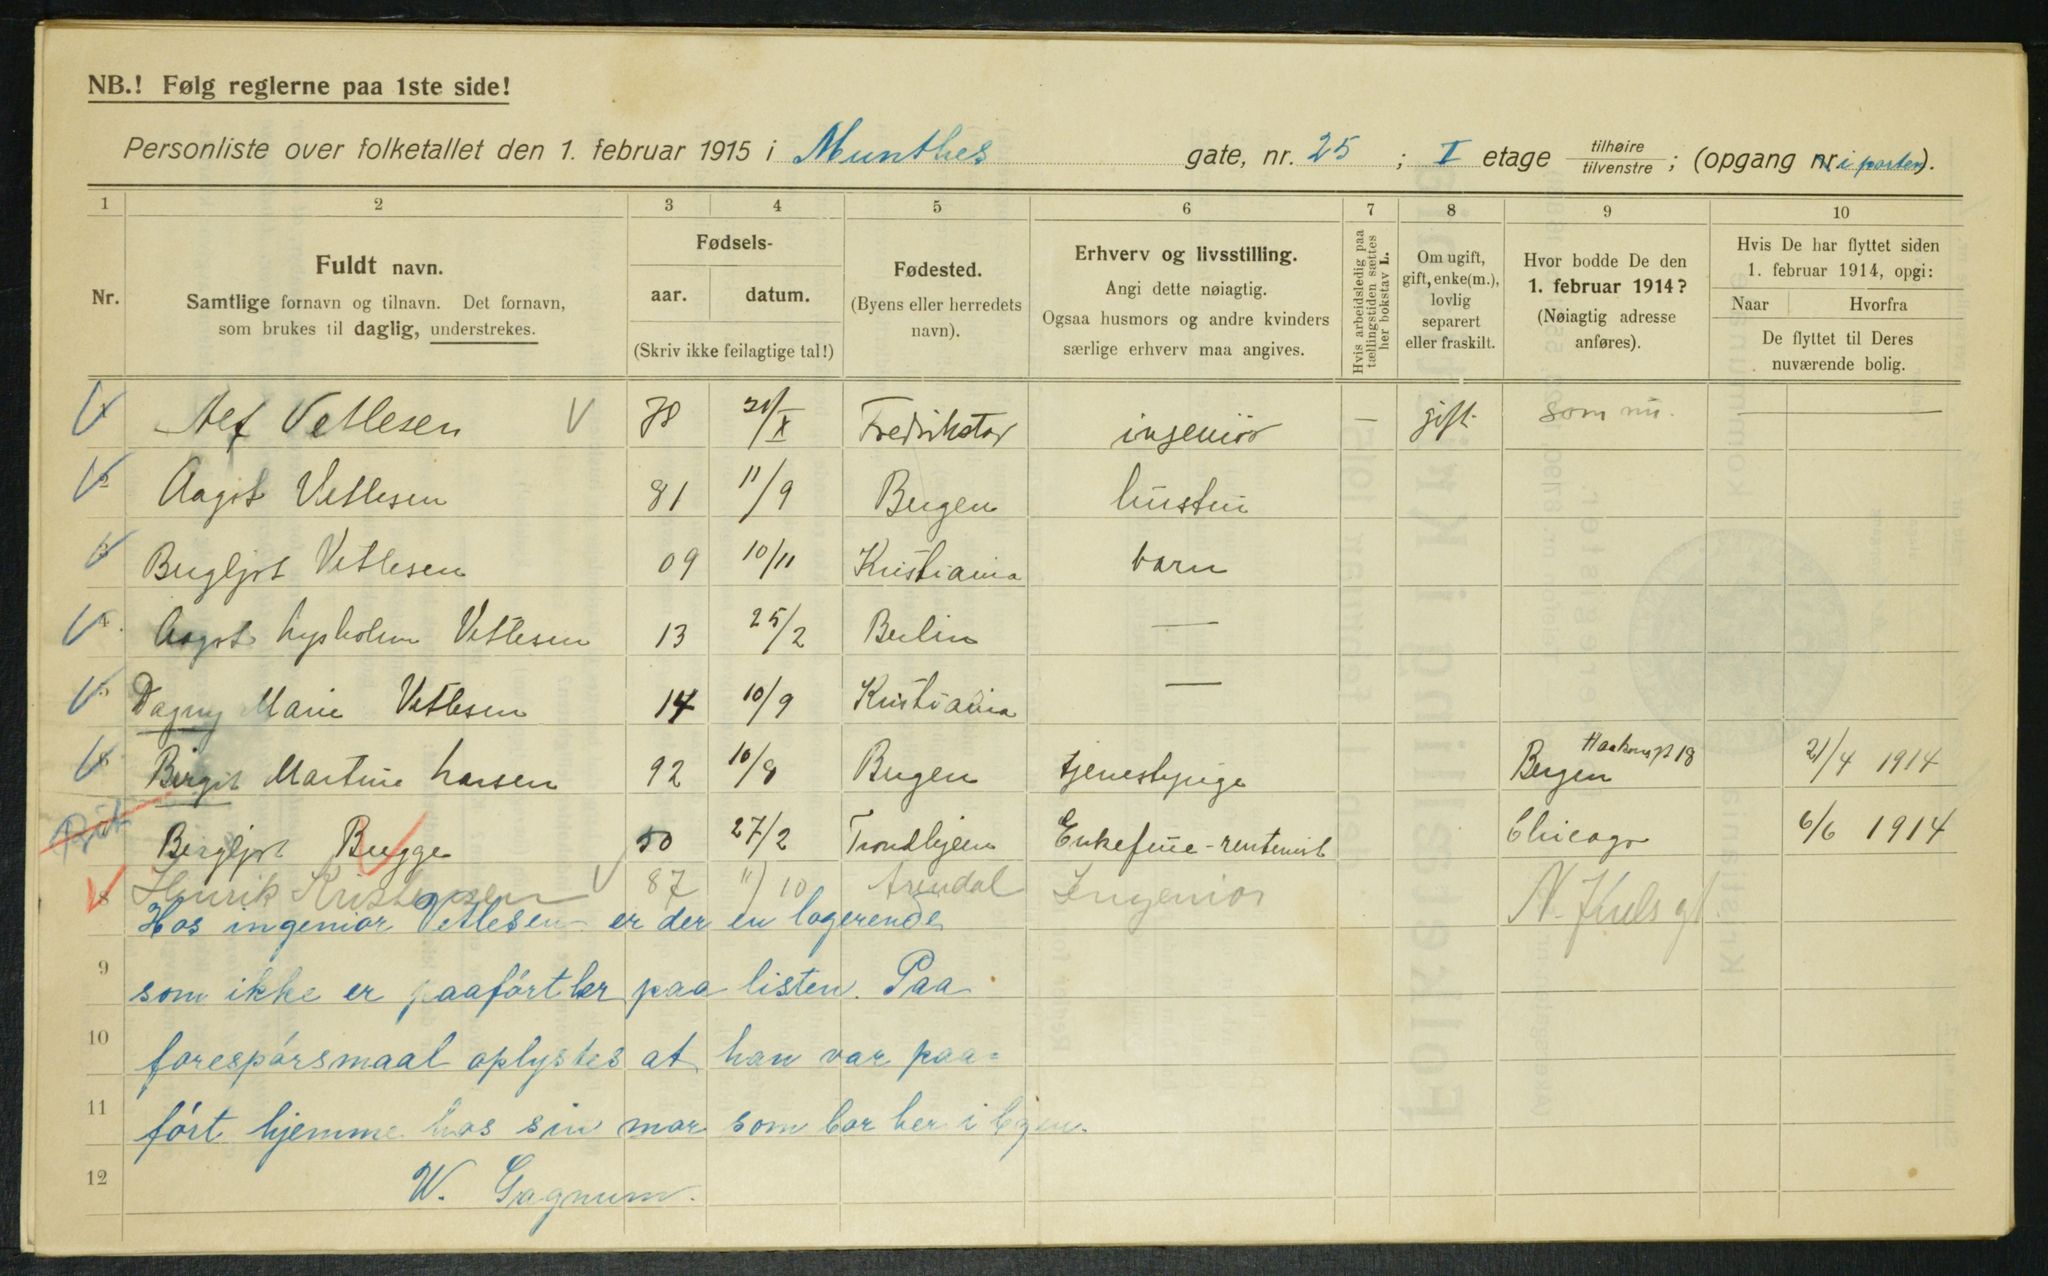 NB.! Følg reglerne paa 1ste side!
Personliste over folketallet den 1. februar 1915 i Munthes gate, nr. 25 ; I etage tilhøire / tilvenstre ; (opgang nr. i porten).
1 2 3 4 5 6 7 8 9 10
Nr.
Fuldt navn.
Samtlige fornavn og tilnavn. Det fornavn,
som brukes til daglig, understrekes.
Fødsels-
aar. datum.
(Skriv ikke feilagtige tal!)
Fødested.
(Byens eller herredets
navn).
Erhverv og livsstilling.
Angi dette nøiagtig.
Ogsaa husmors og andre kvinders
særlige erhverv maa angives.
Hvis arbeidsledig paa
tællingstiden sættes
her bokstav L.
Om ugift,
gift, enke(m.),
lovlig
separert
eller fraskilt.
Hvor bodde De den
1. februar 1914?
(Nøiagtig adresse
anføres).
Hvis De har flyttet siden
1. februar 1914, opgi:
Naar Hvorfra
De flyttet til Deres
nuværende bolig.
1 Alf Vetlesen 78 21/X Fredrikstad ingeniør — gift. som nu. —
2 Aagot Vetlesen 81 11/9 Bergen hustru
3 Bergljot Vetlesen 09 10/11 Kristiania barn
4. Aagot Lysholm Vetlesen 13 25/2 Berlin —
5 Dagny Marie Vetlesen 14 10/9 Kristiania —
6 Bergit Martine Larsen 92 10/8 Bergen tjenestepige Bergen Haakonsgt 18 21/4 1914
Bergljot Bugge 50 27/2 Trondhjem Enkefrue - rentenist Chicago 6/6 1914
8 Henrik Kristensen 87 11/10 Arendal Ingeniør N. Juels gt
Hos ingeniør Vetlesen er der en logerende
9 som ikke er paaført her paa listen. Paa
10 forespørsmaal oplystes at han var paa=
11 ført hjemme hos sin mor som bor her i byen.
12 W. Gagnum.